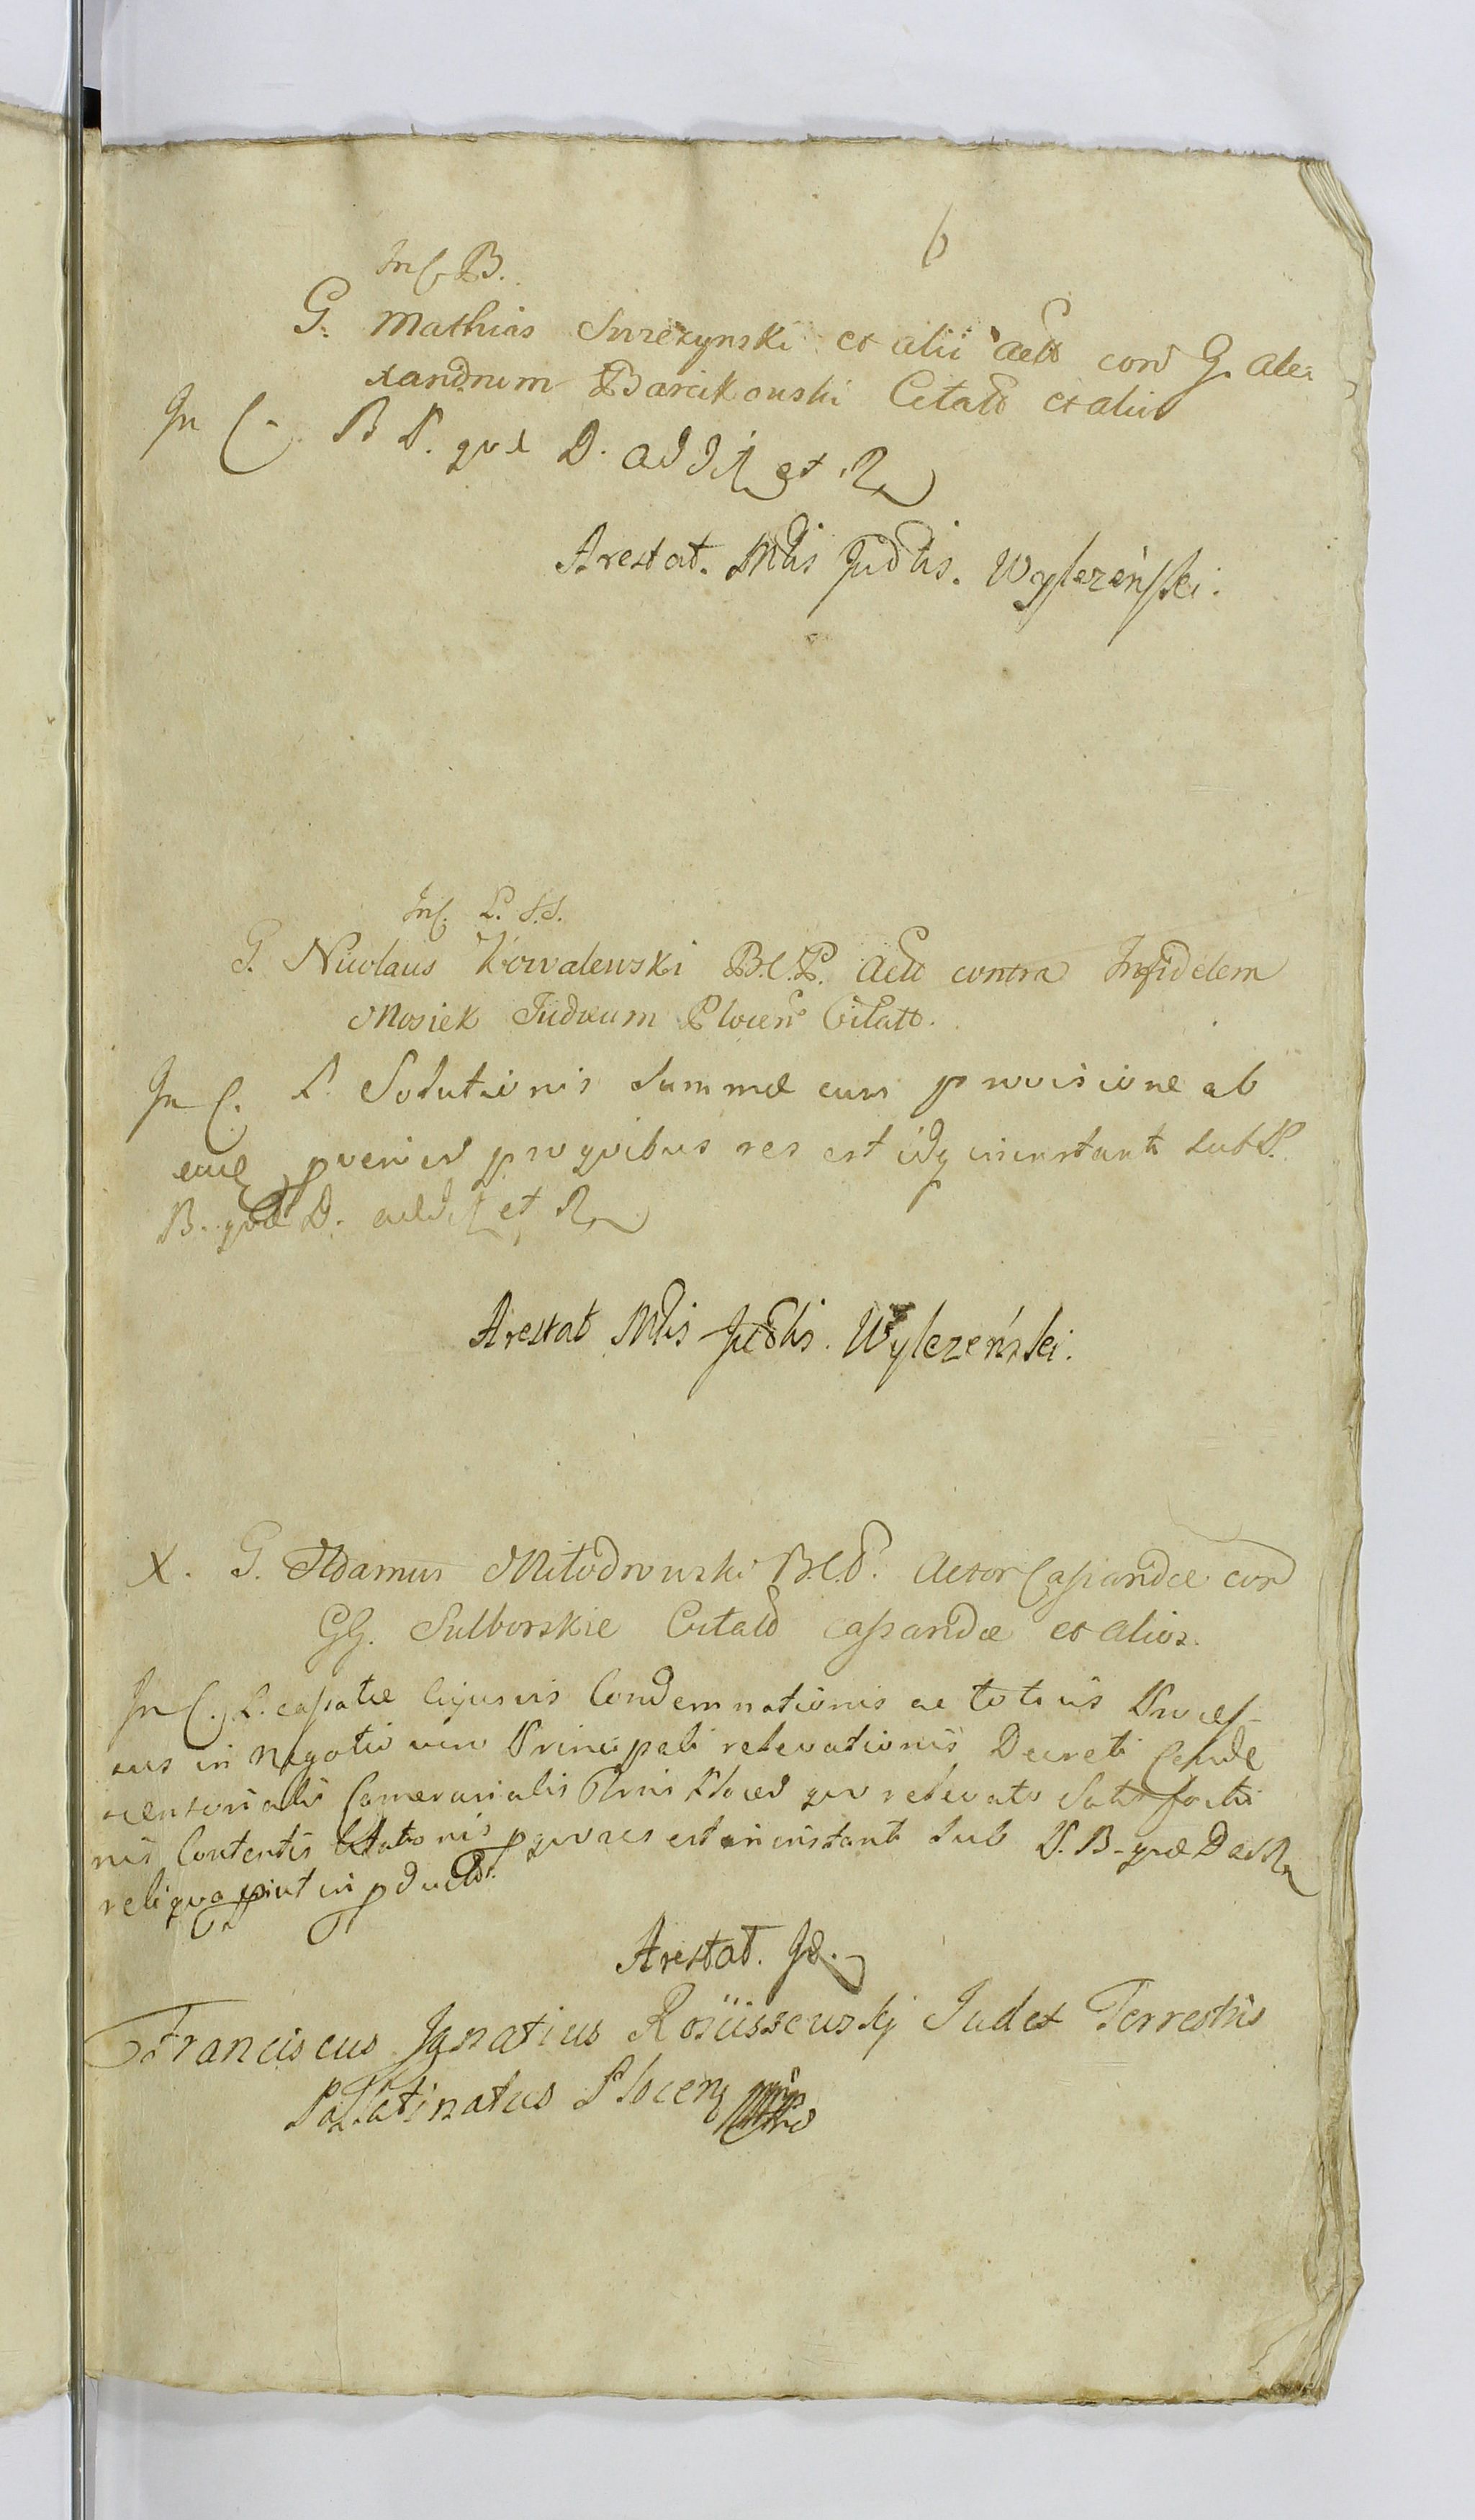 6
Inf. B.
G. Mathias Smrezynski et alii Actt con G. Ale=
xandrum Barcikowski Citatt et alios
In C. B P. qvæ D. add et R
Arestat. Mtis Judtis. Wylezeński.
Inf. P. S.S.
G. Nicolaus Kowalewski B.C.P. Actt contra Infidelem
Mosiek Judæum Plocen Citatt.
In C. P. Solutionis Summæ cum provisione ab
eaq pvenien pro qvibus res est idq in instanti sub P.
B. qvæ D. add et R
Arestat Mtis Judtis. Wylezeński.
X. G. Adamus Mlodowski B.C.P. Actor Cassandæ con
GG. Sulborskie Citatt cassandæ et alios.
In C. P. cassatæ cujusvis Condemnationis ac totius Proces-
sus in Negotio vero Principali relevationis Decreti
Camerarialis Plocen qvo relevato
nis Contentis Citationis p qvo res est in instanti sub P. B. qvæ D
reliqva in pducto.
Arestat. Jd.
Franciscus Ignatius Rosüssewskj Judex Terrestris
Pallatinatus Plocen